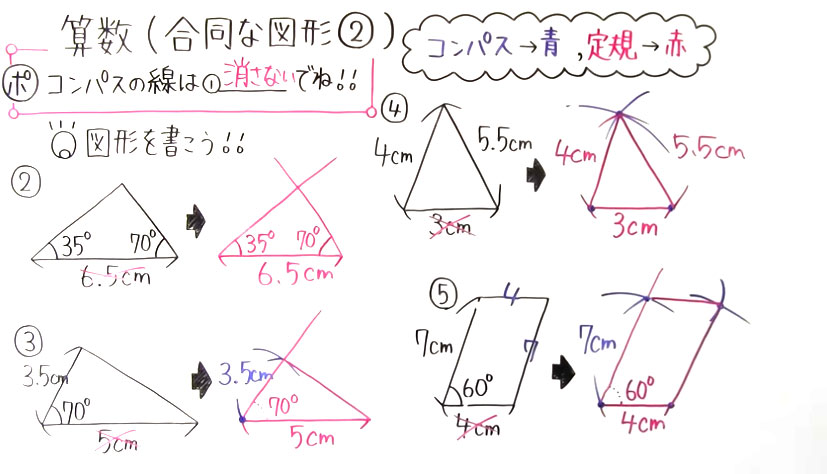 算数(合同な図形②)
コンパス→青,定規→赤
ポ コンパスの線は①消さないでね!!
図形を書こう!!
②
35° 70°
6.5cm
35° 70°
6.5cm
③
3.5cm
70°
5cm
3.5cm
70°
5cm
④
4cm 5.5cm
3cm
4cm 5.5cm
3cm
⑤
4
7cm 7
60°
4cm
7cm
60°
4cm